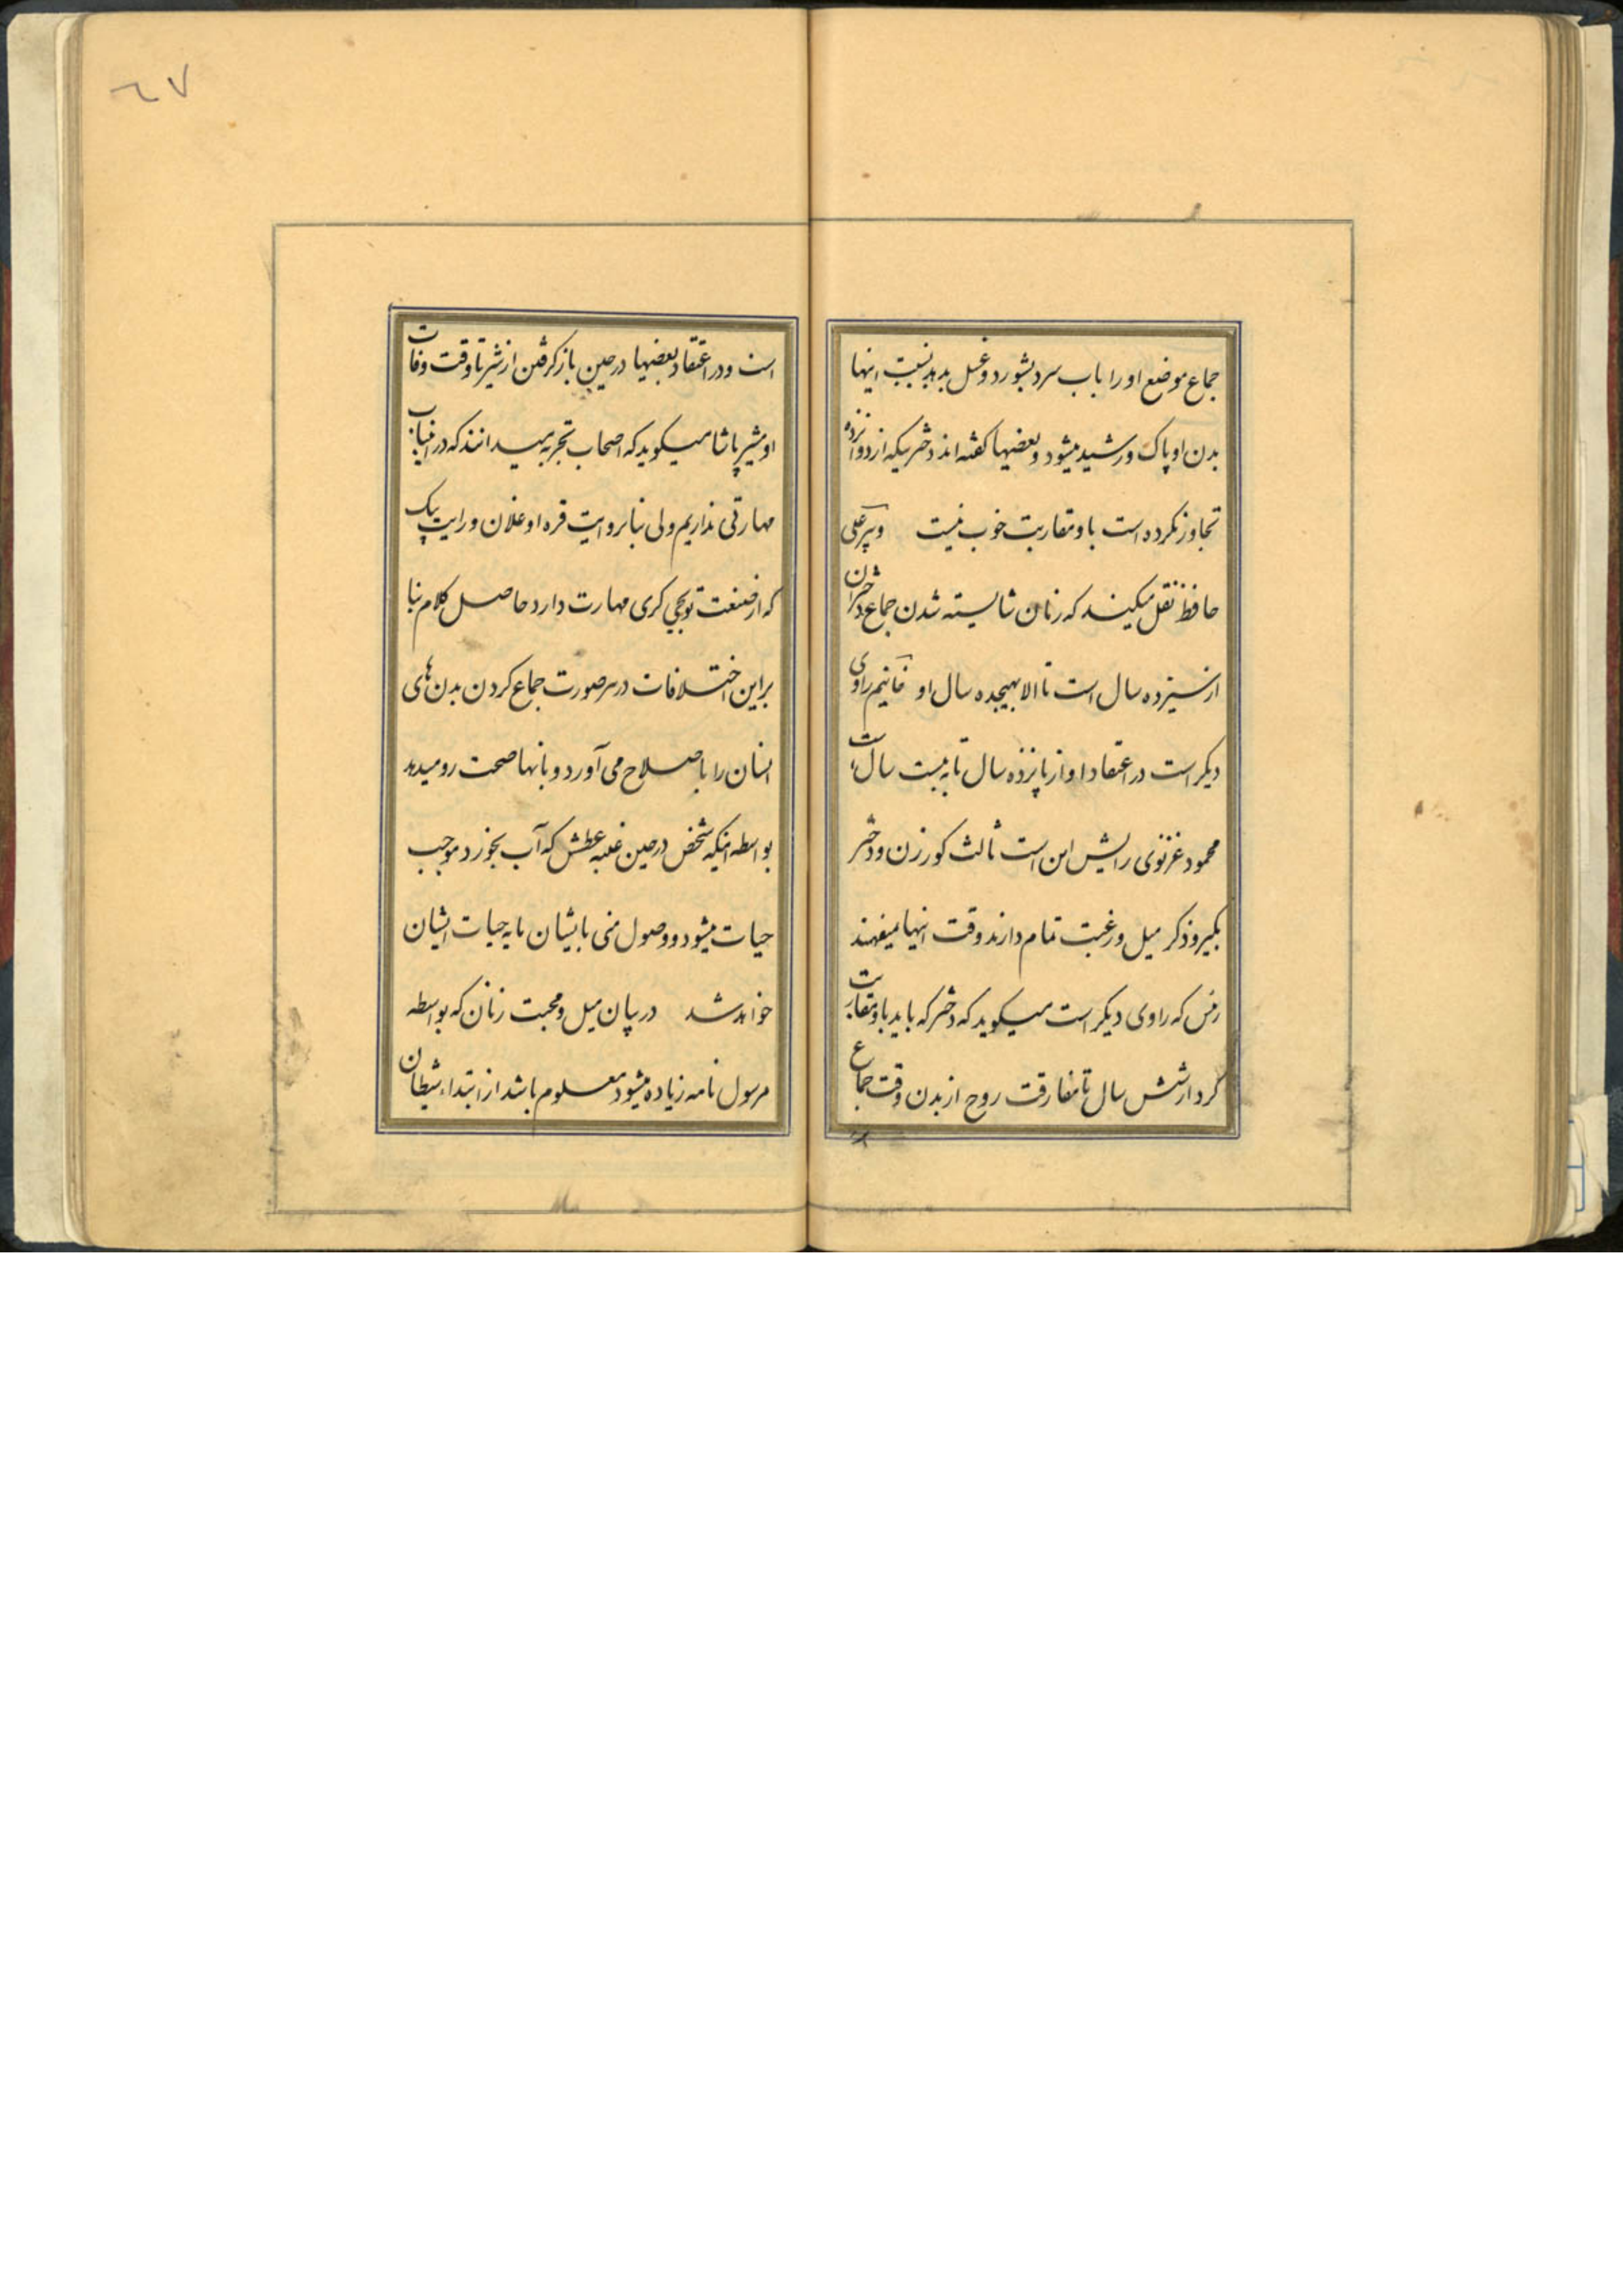 ٦٧
جماع موضع او را باب سرد بشورد و غسل بدهد بسبب اینها
بدن او پاک و رشید میشود و بعضیها گفته اند دختریکه از دوانزده
تجاوز نکرده است با و مقاربت خوب نیست و پیر علی
حافظ نقل میکنند که زنان شایسته شدن جماع دختران
از سیزده سال است تا الا بهیجده سال او راوی
دیکر است در اعتقاد او از پانزده سال تا به بیست سال است
محمود غزنوی رایش این است ثالث کور زن و دختر
میل و رغبت تمام دارند وقت اینها میفهمند
که راوی دیکر است میکوید که دختر که باید با و مقاربت
کرد از شش سال تا مفارقت روح از بدن وقت جماع
است و در اعتقاد بعضیها در حین باز کرفتن از شیر تا وقت وفات
او مشیر پاشا میکوید که اصحاب تجربه میدانند که در این باب
مهارتی نداریم ولی بنا بروایت قره اوغلان و رایت بیک
که از صنعت توپچی کری مهارت دارد حاصل کلام بنا
براین اختلافات در هر صورت جماع کردن بدن های
انسان را باصلاح می آورد و بانها صحت رو میدهد
بواسطه اینکه شخص در حین غلبه عطش که آب بخورد موجب
حیات میشود و وصول منی بایشان مایه حیات ایشان
خواهد شد در بیان میل و محبت زنان که بواسطه
مرسول نامه زیاده میشود معلوم باشد از ابتداء شیطان